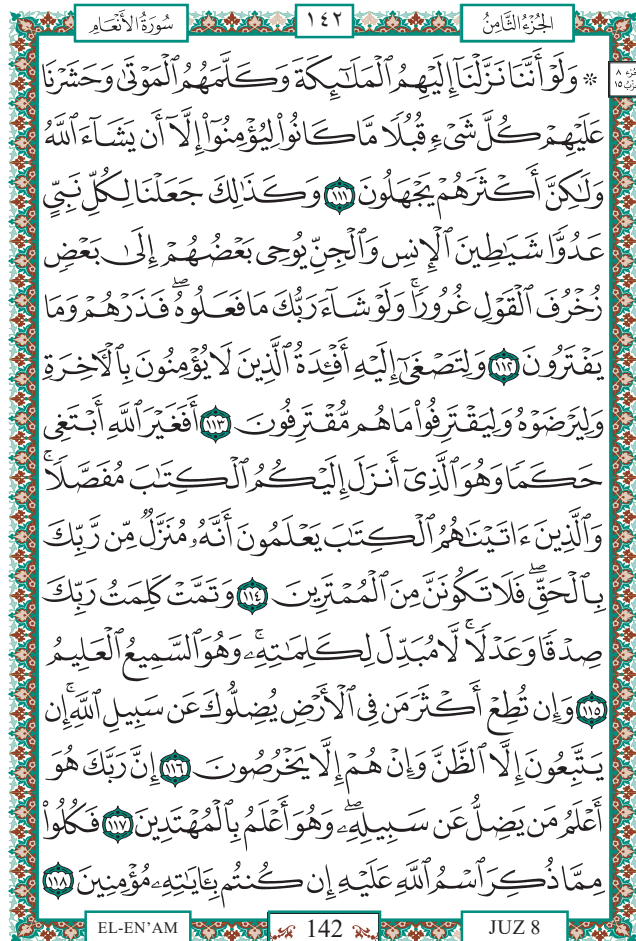 سُورَةُ الأَنْعَامِ ١٤٢ الجُزْءُ الثَّامِنُ
۞ وَلَوْ أَنَّنَا نَزَّلْنَآ إِلَيْهِمُ ٱلْمَلَـٰٓئِكَةَ وَكَلَّمَهُمُ ٱلْمَوْتَىٰ وَحَشَرْنَا
عَلَيْهِمْ كُلَّ شَىْءٍ قُبُلًا مَّا كَانُوا۟ لِيُؤْمِنُوٓا۟ إِلَّآ أَن يَشَآءَ ٱللَّهُ
وَلَـٰكِنَّ أَكْثَرَهُمْ يَجْهَلُونَ ١١١ وَكَذَٰلِكَ جَعَلْنَا لِكُلِّ نَبِىٍّ
عَدُوًّا شَيَـٰطِينَ ٱلْإِنسِ وَٱلْجِنِّ يُوحِى بَعْضُهُمْ إِلَىٰ بَعْضٍ
زُخْرُفَ ٱلْقَوْلِ غُرُورًا ۚ وَلَوْ شَآءَ رَبُّكَ مَا فَعَلُوهُ ۖ فَذَرْهُمْ وَمَا
يَفْتَرُونَ ١١٢ وَلِتَصْغَىٰٓ إِلَيْهِ أَفْـِٔدَةُ ٱلَّذِينَ لَا يُؤْمِنُونَ بِٱلْـَٔاخِرَةِ
وَلِيَرْضَوْهُ وَلِيَقْتَرِفُوا۟ مَا هُم مُّقْتَرِفُونَ ١١٣ أَفَغَيْرَ ٱللَّهِ أَبْتَغِى
حَكَمًا وَهُوَ ٱلَّذِىٓ أَنزَلَ إِلَيْكُمُ ٱلْكِتَـٰبَ مُفَصَّلًا ۚ
وَٱلَّذِينَ ءَاتَيْنَـٰهُمُ ٱلْكِتَـٰبَ يَعْلَمُونَ أَنَّهُۥ مُنَزَّلٌ مِّن رَّبِّكَ
بِٱلْحَقِّ ۖ فَلَا تَكُونَنَّ مِنَ ٱلْمُمْتَرِينَ ١١٤ وَتَمَّتْ كَلِمَتُ رَبِّكَ
صِدْقًا وَعَدْلًا ۚ لَّا مُبَدِّلَ لِكَلِمَـٰتِهِۦ ۚ وَهُوَ ٱلسَّمِيعُ ٱلْعَلِيمُ
١١٥ وَإِن تُطِعْ أَكْثَرَ مَن فِى ٱلْأَرْضِ يُضِلُّوكَ عَن سَبِيلِ ٱللَّهِ ۚ إِن
يَتَّبِعُونَ إِلَّا ٱلظَّنَّ وَإِنْ هُمْ إِلَّا يَخْرُصُونَ ١١٦ إِنَّ رَبَّكَ هُوَ
أَعْلَمُ مَن يَضِلُّ عَن سَبِيلِهِۦ ۖ وَهُوَ أَعْلَمُ بِٱلْمُهْتَدِينَ ١١٧ فَكُلُوا۟
مِمَّا ذُكِرَ ٱسْمُ ٱللَّهِ عَلَيْهِ إِن كُنتُم بِـَٔايَـٰتِهِۦ مُؤْمِنِينَ ١١٨
EL-EN'AM 142 JUZ 8